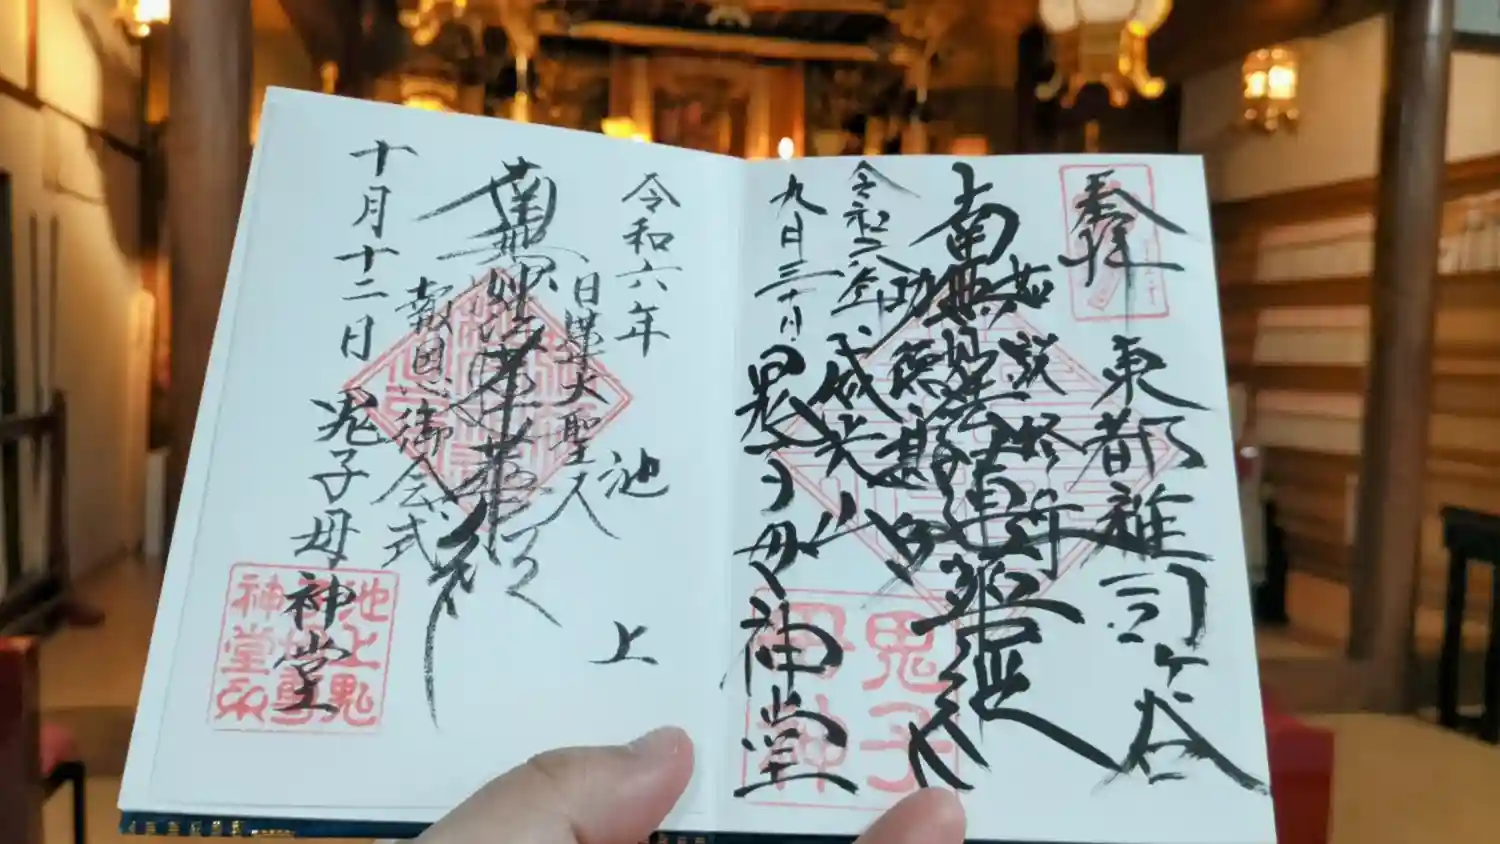 奉拝
東都雑司ヶ谷
南無妙法蓮華経
功徳
威光
令和六年
九月三十日
鬼子母神堂
鬼子母神
令和六年
池上
日蓮大聖人
南無妙法蓮華経
報恩御会式
十月十二日
鬼子母神堂
池上鬼子母尊神堂印